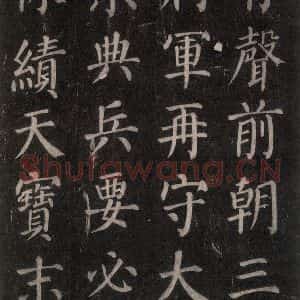 聲前朝三
軍再守大
典兵要必
績天寶末
Shufawang.CN